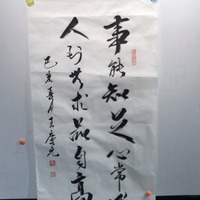 事能知足心常
人到无求品自高
己亥春月